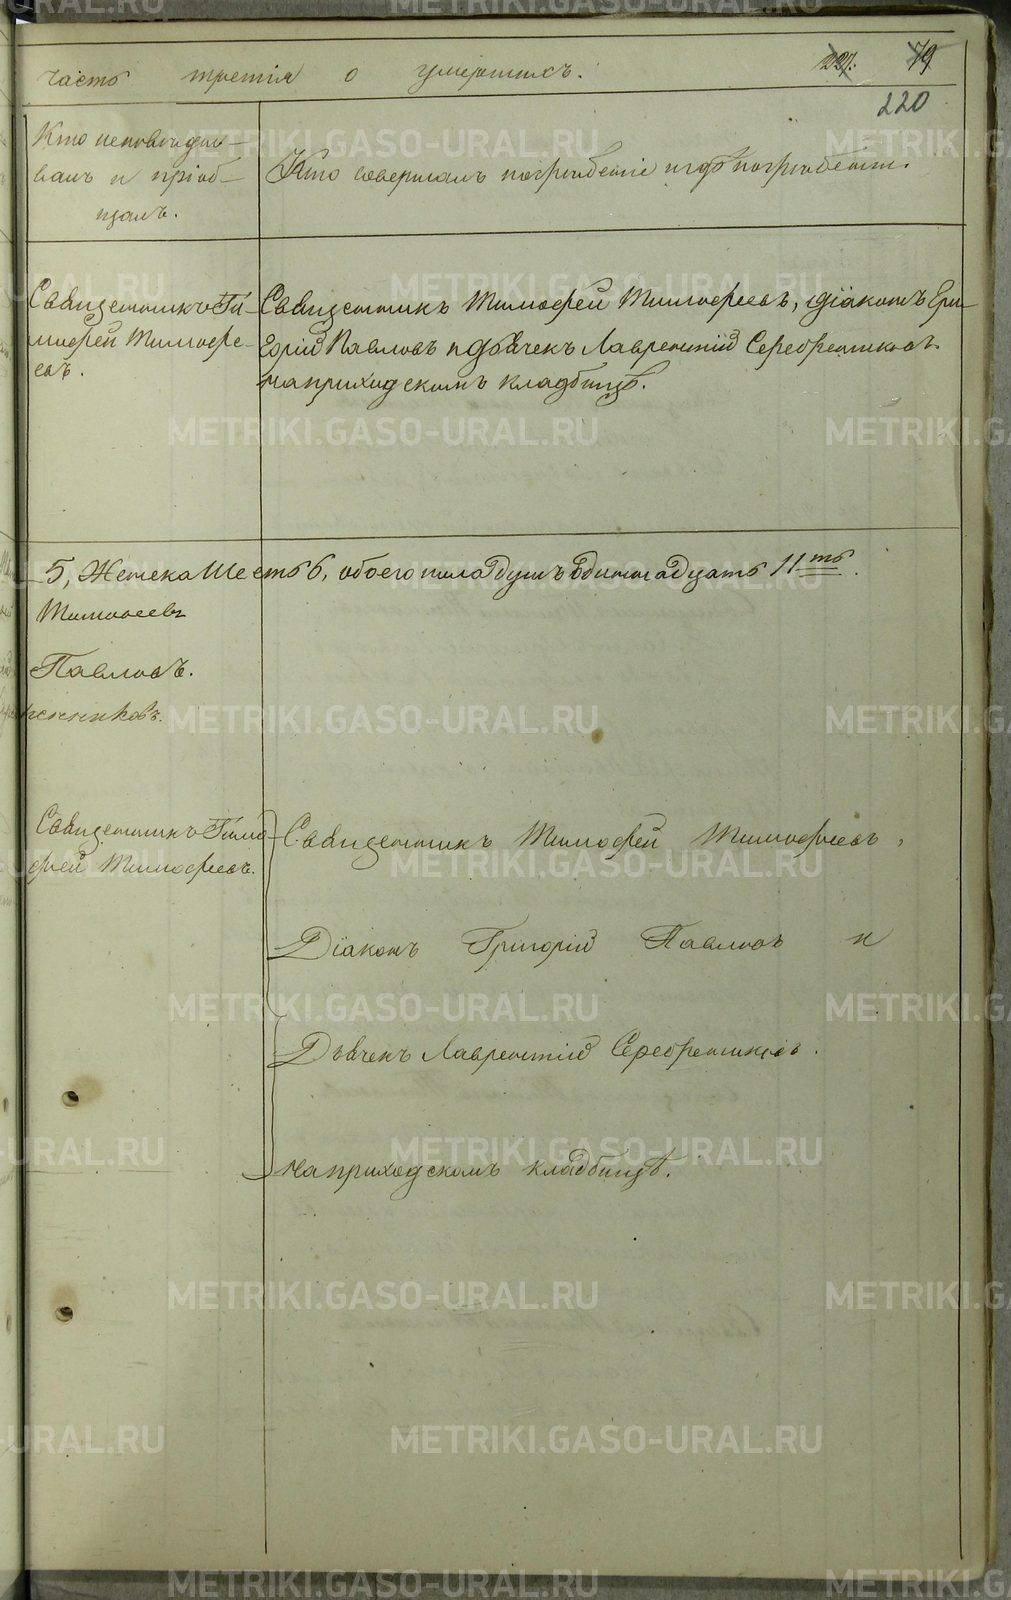 часть третія о умершихъ. 227. 79
220
Кто исповѣды-
валъ и пріоб-
щалъ.
Кто совершалъ погребеніе и гдѣ погребены.
Священникъ Ти-
мофей Тимофе-
евъ.
Священникъ Тимофей Тимофеевъ, діаконъ Гри-
горій Павловъ и дьячекъ Лаврентій Серебренниковъ
на приходскомъ кладбищѣ.
5, Женска Шесть 6, обоего пола душъ одиннадцать 11ть.
Тимофеевъ
Павловъ.
ренниковъ.
Священникъ Тимо-
фей Тимофеевъ.
Священникъ Тимофей Тимофеевъ,
Діаконъ Григорій Павловъ и
Дьячекъ Лаврентій Серебренниковъ.
на приходскомъ кладбищѣ.
METRIKI.GASO-URAL.RU